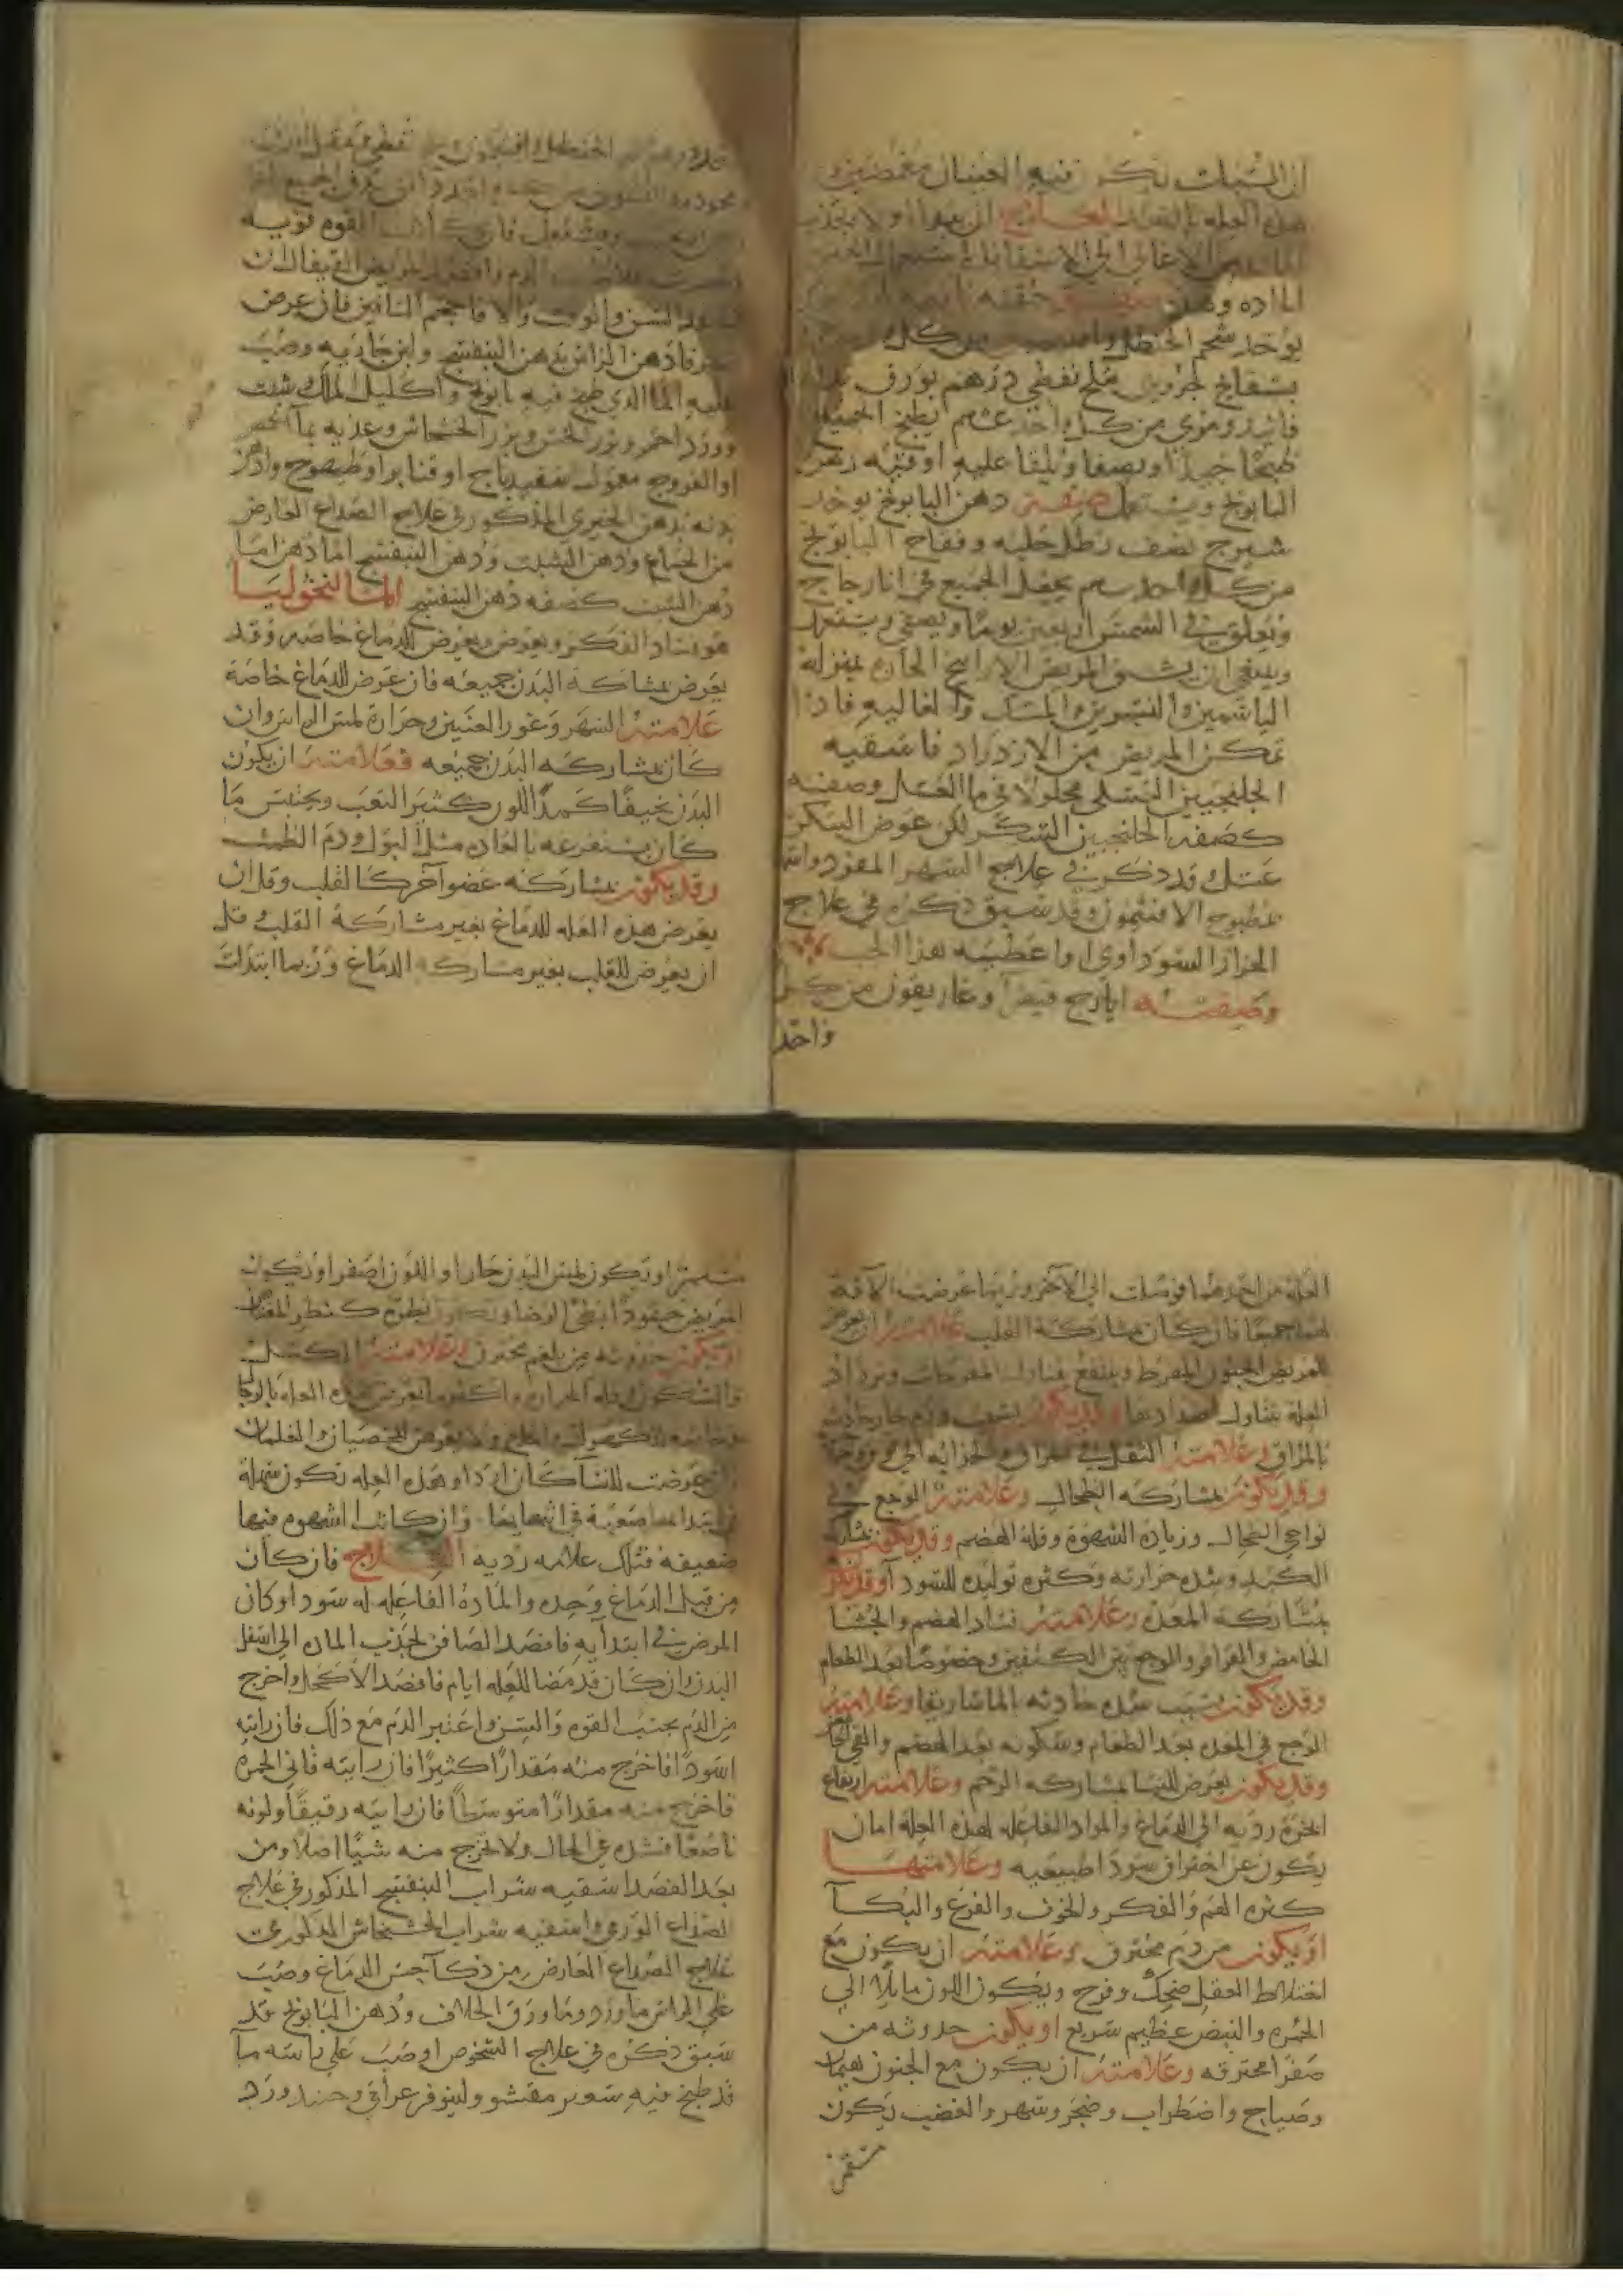 ان السبات تكون فيه العينان مغمضتين و
هذه العله بالضد العلاج ان يبدا اولا بجذب
من الاعالي الى الاسافل
الماده حقنه
يوخذ شحم الحنظل من كل
بسفايج جزوين ملح نفطي درهم بورق
من كل واحد عشره يطبخ الجميع
طبخا جيدا ويصفا ويلقا عليه اوقيه دهن
البابونج ويستعمل صفة دهن البابونج يوخد
شيرج نصف رطل حلبه وفقاح البابونج
من كل واحد سهم يجعل الجميع في انا زجاج
ويعلق في الشمس اربعين يوما ويصفى ويستعمل
وينبغي ان يشم المريض الاراييح الحاره بمنزلة
الياسمين والنسرين والمسك والغاليه فاذا
تمكن المريض من الازدراد فاسقيه
الجلنجبين العسلي محلولا في ما العسل وصفته
كصفه الجلنجبين السكر لكن عوض السكر
عسل وقد ذكر في علاج السهر المفرد واسقه
مطبوح الافتيمون وقد سبق ذكره في علاج
الحزاز السوداوي او اعطيه هذا الحب
وصفته ايارج فيقرا وغاريقون من كل
واحد
الحنظل وافتيمون ملح نفطي ومقل ازرق
محموده
ويستعمل فان كانت القوه قويه
الدم وافصد المريض القيفال ان
السن والوقت والا فاحجم الساقين فان عرض
سهر فادهن الراس بدهن البنفسج ولبن جاريه وصب
عليه الما الذي طبخ فيه بابونج واكليل الملك وشبت
وورد احمر وبزر الخس وبزر الخشخاش وغذيه بما الحمص
او الفروج معمول سفيدباج او قنابر او طيهوج وادهن
بدنه بدهن الخيري المذكور في علاج الصداع العارض
من الجماع ودهن الشبت ودهن البنفسج اما دهن اما
دهن الشبت كصفه دهن البنفسج المالنخوليا
هو فساد الفكر ويعرض ويعرض للدماغ خاصه وقد
يعرض بمشاركة البدن جميعه فان عرض للدماغ خاصة
علامته السهر وغور العينين وحرارة لمس الراس وان
كان بمشاركه البدن جميعه فعلامته ان يكون
البدن نحيفا كمد اللون كثير التعب ويحتبس ما
كان يستفرغه بالعاده مثل البول ودم الطمث
وقد يكون بمشاركه عضو آخر كالقلب وقل ان
يعرض هذه العله للدماغ بغير مشاركة القلب وقل
ان يعرض للقلب بغير مشاركه الدماغ وربما ابتدات
العله من احدهما فوصلت الى الآخر وربما عرضت الآفة
لهما جميعا فان كان بمشاركة القلب علامته ان يعرض
للمريض الجنون المفرط وينتفع بتناول المفرحات وتزداد
العله بتناول اضدادها وقد يكون بسبب ورم حار حادث
بالمراق وعلامته الثقل في المراق والحراره
وقد يكون بمشاركه الطحال وعلامته الوجع في
نواحي الطحال وزيادة الشهوة وقلة الهضم وقد يكون بمشاركه
الكبد وشده حرارته وكثره توليده للسودا وقد يكون
بمشاركه المعده وعلامته فساد الهضم والجشا
الحامض والقراقر والوجع بين الكتفين وخصوصا بعد الطعام
وقد يكون بسبب سده حادثه بالماساريقا وعلامته
الوجع في المعده بعد الطعام وسكونه بعد الهضم والقي
وقد يكون يعرض للنسا بمشاركه الرحم وعلامته ارتفاع
ابخرة رديه الى الدماغ والمواد الفاعله لهذه العلة اما ان
يكون عن احتراق سودا طبيعيه وعلامتها
كثره الغم والفكر والخوف والفزع والبكآ
او يكون من دم محترق وعلامته ان يكون مع
اختلاط العقل ضحك وفرح ويكون اللون مايلا الى
الحمره والنبض عظيم سريع او يكون حدوثه من
صفرا محترقه وعلامته ان يكون مع الجنون هيمان
وصياح واضطراب وضجر وسهر والغضب يكون
مستمرا ويكون لمس البدن حارا واللون اصفر او يكون
المريض حقودا بطي الرضا ويكون نظره كنظر
او يكون حدوثه من بلغم محترق وعلامته الكسل
والسكون وقله الحراره واكثر ما تعرض هذه العله بالرجال
وخاصه للكهول ولا يعرض للخصيان والغلمان
وان عرضت للنسا كان اردا وهذه العله تكون سهلة
في ابتدايها صعبة في انتهايها وان كانت الشهوه فيها
ضعيفه فتلك علامه رديه العلاج فان كان
من قبل الدماغ وحده والماده الفاعله له سودا وكان
المرض في ابتدايه فافصد الصافن لجذب الماده الى اسفل
البدن وان كان قد مضا للعله ايام فافصد الاكحل واخرج
من الدم بحسب القوه والسن واعتبر الدم مع ذلك فان رايته
اسودا فاخرج منه مقدارا كثيرا فان رايته قاني الحمره
فاخرج منه مقدارا متوسطا فان رايته رقيقا ولونه
ناصعا فشده في الحال ولا تخرج منه شيا اصلا ومن
بعد الفصد اسقيه شراب البنفسج المذكور في علاج
الصداع الورمي واسقيه شراب الخشخاش المذكور في
علاج الصداع العارض من ذكآ حس الدماغ وصب
على الراس ما ورد وما ورق الخلاف ودهن البابونج قد
سبق ذكره في علاج الشخوص او صب على راسه مآ
قد طبخ فيه شعير مقشر ولينوفر عراقي وخس وورد